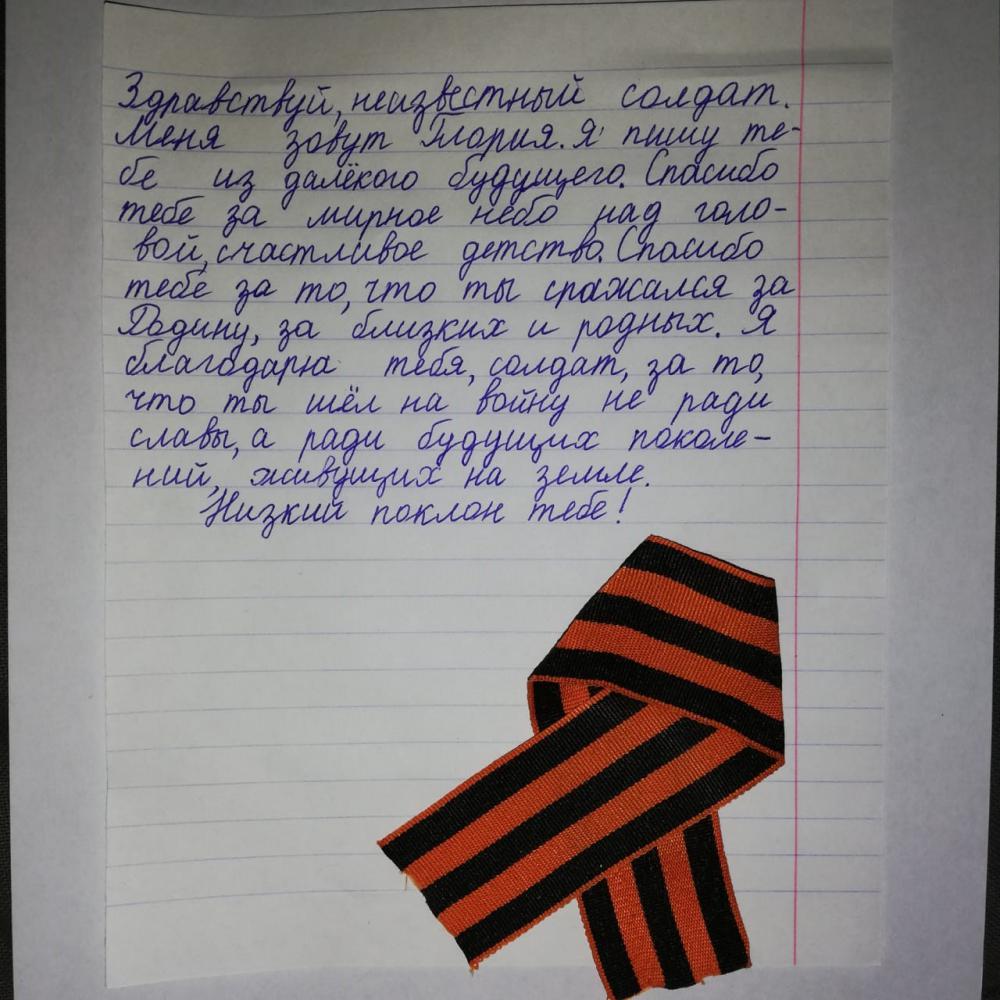 Здравствуй, неизвестный солдат.
Меня зовут Глория. Я пишу те-
бе из далёкого будущего. Спасибо
тебе за мирное небо над голо-
вой, счастливое детство. Спасибо
тебе за то, что ты сражался за
Родину, за близких и родных. Я
благодарю тебя, солдат, за то,
что ты шёл на войну не ради
славы, а ради будущих поколе-
ний, живущих на земле.
Низкий поклон тебе!